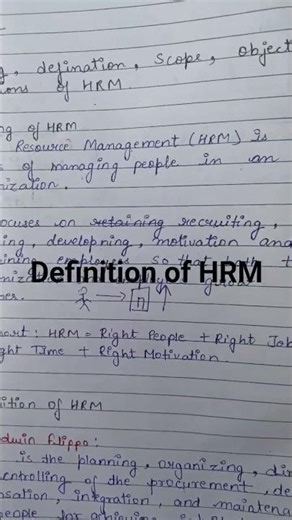 , defination, Scope, Object
ons of HRM.
g of HRM
Resource Management (HRM) is
s of managing people in an
nization.
ocuses on retaining recruiting,
ing, developning, motivation and
ining employees so that both t
Definition of HRM
ort: HRM = Right People + Right Job
ght Time + Right Motivation.
ition of HRM
dwin Flippo:
is the planning, organizing, dir
controlling of the procurement, de
nsation, integration, and maintena
people for